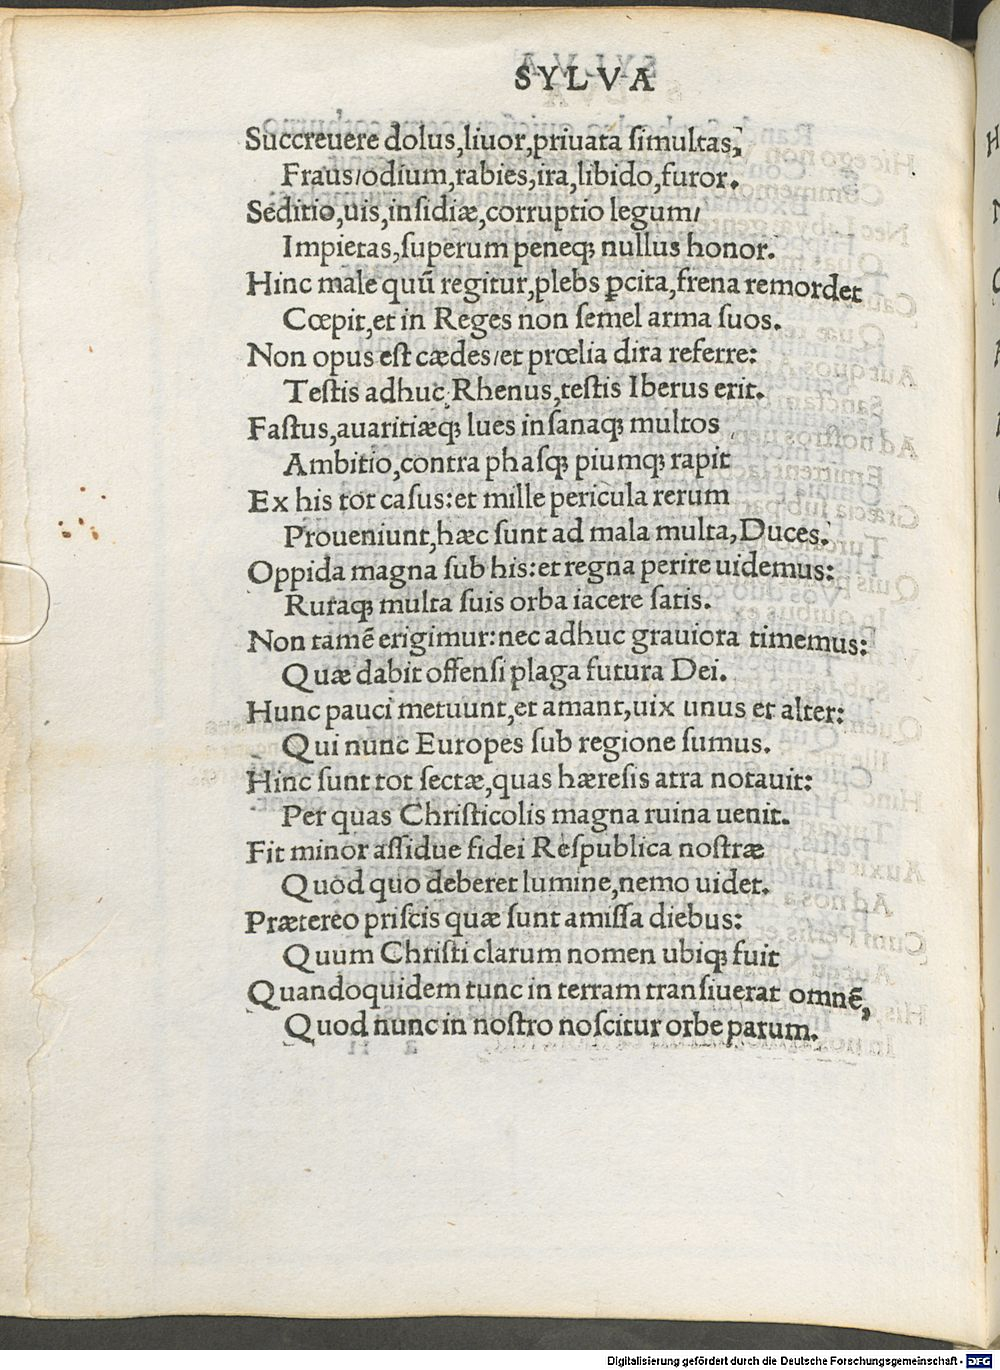 SYLVA
Succreuere dolus,liuor,priuata ſimultas,
Fraus/odium,rabies,ira,libido,furor.
Seditio,uis,inſidiæ,corruptio legum/
Impietas,ſuperum peneqꝫ nullus honor.
Hinc male quū regitur,plebs ꝑcita,frena remordet
Cœpit,et in Reges non ſemel arma ſuos.
Non opus eſt cædes/et prœlia dira referre:
Teſtis adhuc Rhenus,teſtis Iberus erit.
Faſtus,auaritiæqꝫ lues inſanaqꝫ multos
Ambitio,contra phaſqꝫ piumqꝫ rapit
Ex his tot caſus:et mille pericula rerum
Proueniunt,hæc ſunt ad mala multa,Duces.
Oppida magna ſub his:et regna perire uidemus:
Ruraqꝫ multa ſuis orba iacere ſatis.
Non tamē erigimur:nec adhuc grauiora timemus:
Quæ dabit offenſi plaga futura Dei.
Hunc pauci metuunt,et amant,uix unus et alter:
Qui nunc Europes ſub regione ſumus.
Hinc ſunt tot ſectæ,quas hæreſis atra notauit:
Per quas Chriſticolis magna ruina uenit.
Fit minor aſſidue fidei Reſpublica noſtræ
Quod quo deberet lumine,nemo uidet.
Prætereo priſcis quæ ſunt amiſſa diebus:
Quum Chriſti clarum nomen ubiqꝫ fuit
Quandoquidem tunc in terram tranſiuerat omnē,
Quod nunc in noſtro noſcitur orbe parum.
Digitalisierung gefördert durch die Deutsche Forschungsgemeinschaft - DFG